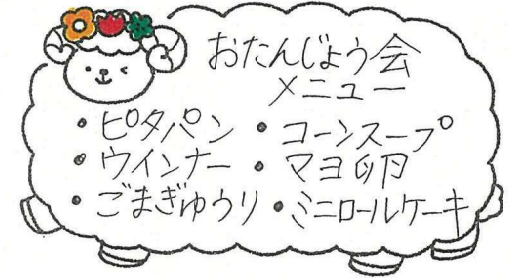 おたんじょう会
メニュー
・ピタパン ・コーンスープ
・ウインナー ・マヨ卵
・ごまぎゅうり ・ミニロールケーキ